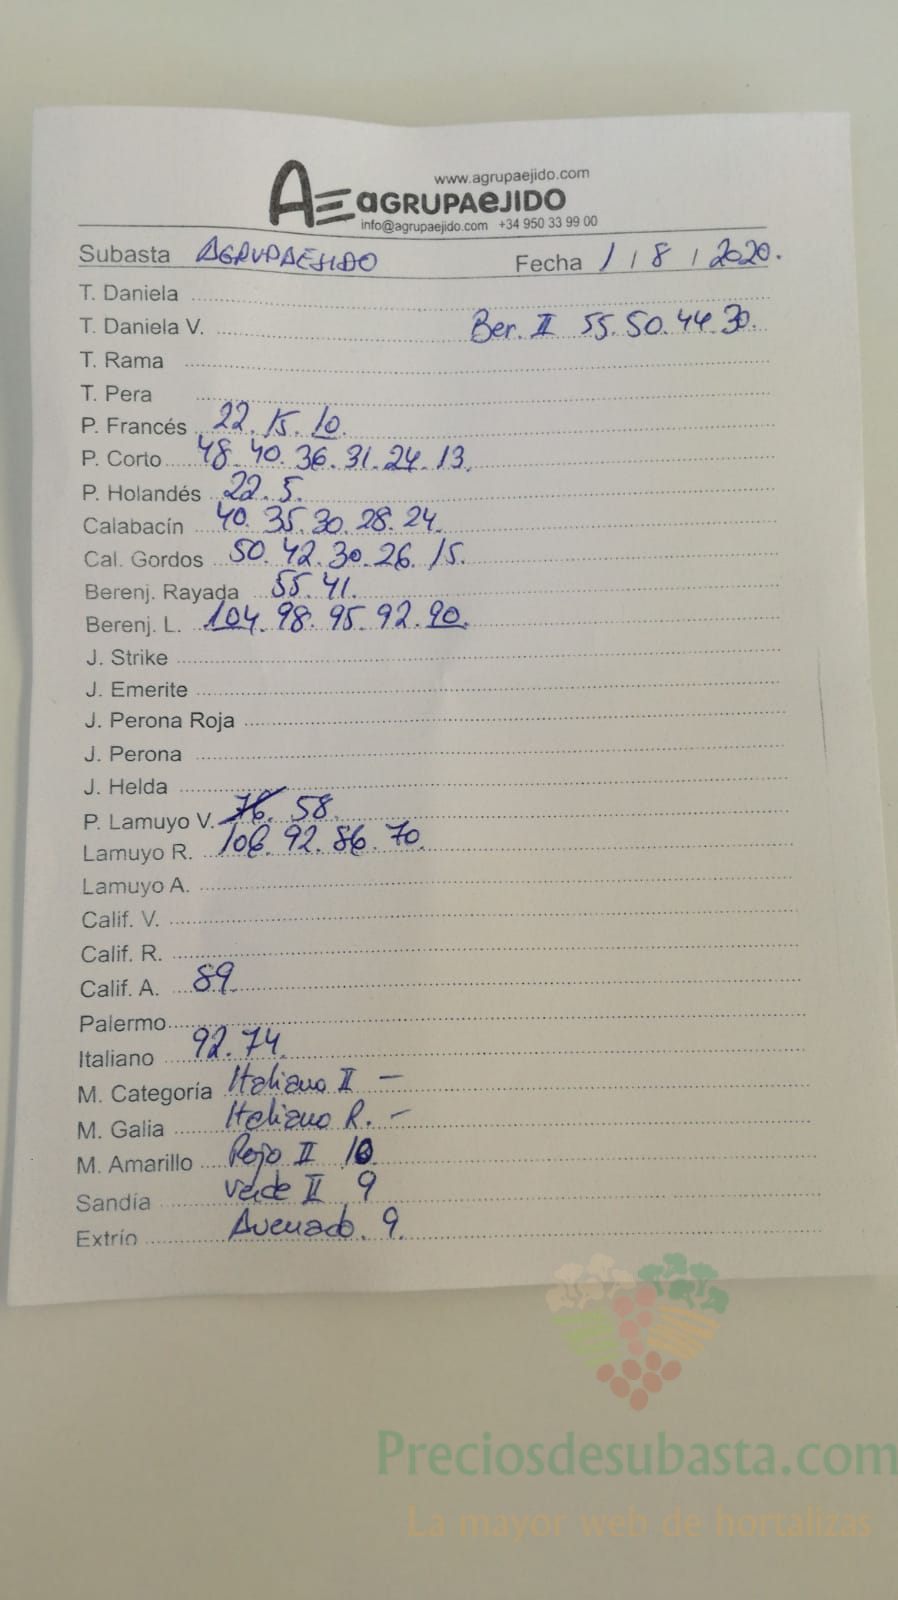 www.agrupaejido.com
AGRUPAEJIDO
info@agrupaejido.com +34 950 33 99 00
Subasta AGRUPAEJIDO Fecha 1 / 8 / 2020.
T. Daniela
T. Daniela V. Ber. II 55. 50. 44. 30.
T. Rama
T. Pera
P. Francés 22. 15. 10.
P. Corto 48. 40. 36. 31. 24. 13.
P. Holandés 22. 5.
Calabacín 40. 35. 30. 28. 24.
Cal. Gordos 50. 42. 30. 26. 15.
Berenj. Rayada 55. 41.
Berenj. L. 104. 98. 95. 92. 90.
J. Strike
J. Emerite
J. Perona Roja
J. Perona
J. Helda
P. Lamuyo V. 76. 58.
Lamuyo R. 106. 92. 86. 70.
Lamuyo A.
Calif. V.
Calif. R.
Calif. A. 89.
Palermo
Italiano 92. 74.
M. Categoría Italiano II –
M. Galia Italiano R. –
M. Amarillo Rojo II 10
Sandía Verde II 9
Extrío Avenado. 9.
Preciosdesubasta.com
La mayor web de hortalizas